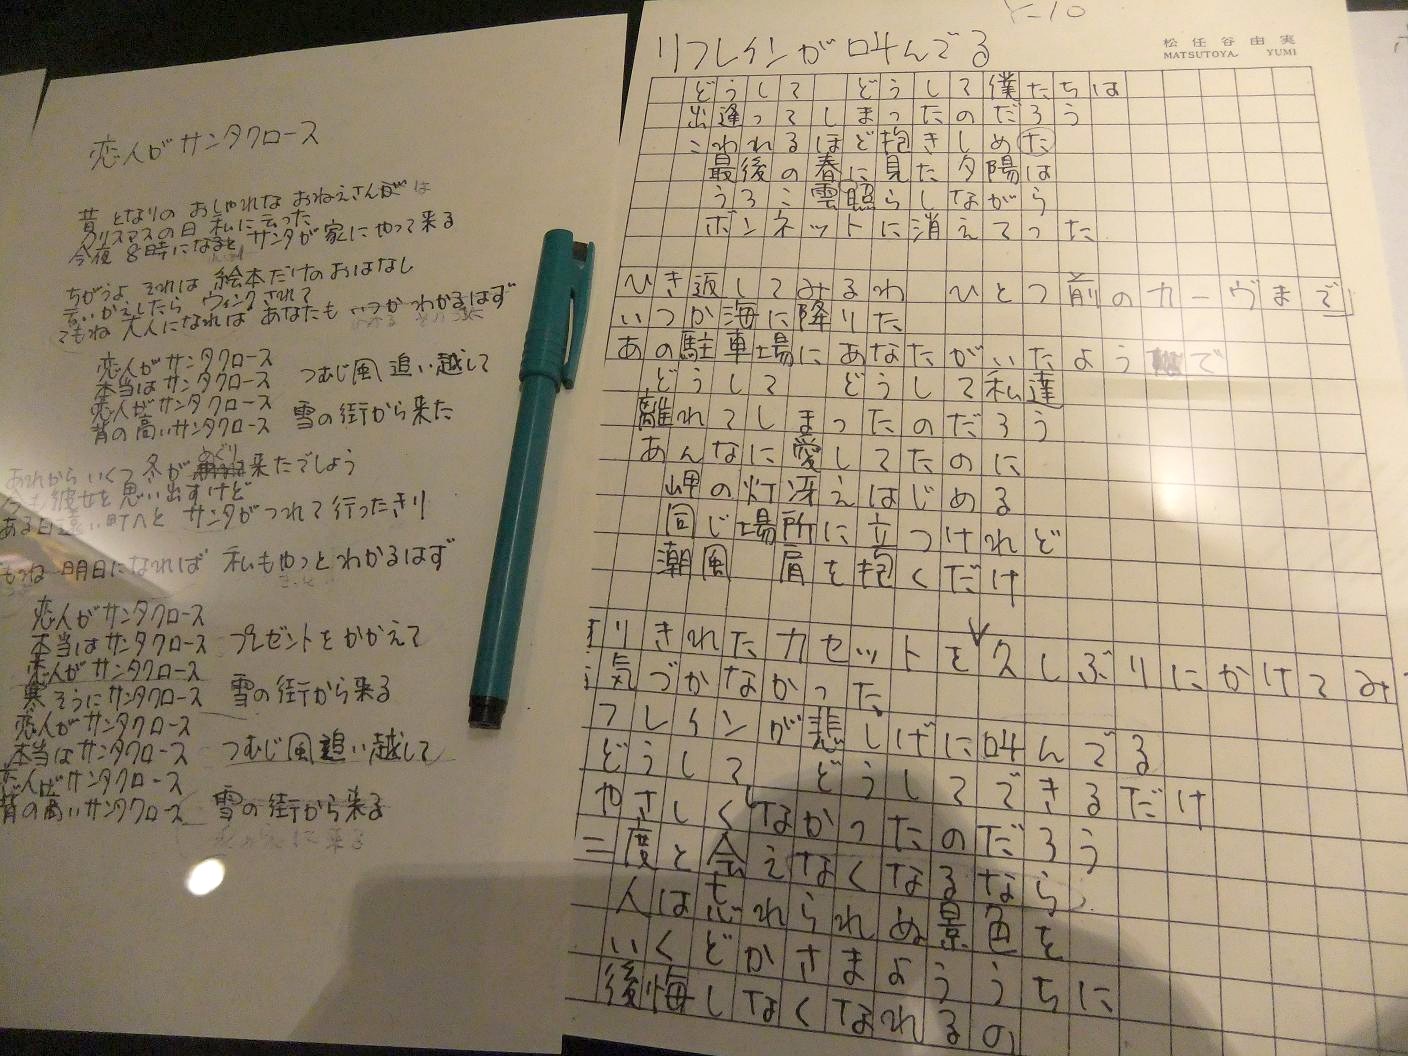 恋人がサンタクロース
昔 となりの おしゃれな おねえさんは
クリスマスの日 私に云った
今夜 8時になると サンタが家にやって来る
ちがうよ それは 絵本だけのおはなし
言いかえしたら ウィンクされて
でもね 大人になれば あなたも いつか わかるはず
恋人がサンタクロース
本当はサンタクロース つむじ風 追い越して
恋人がサンタクロース
背の高いサンタクロース 雪の街から来た
あれから いくつ冬が めぐり来たでしょう
今も彼女を思い出すけど
ある日遠い町へと サンタがつれて行ったきり
もね 明日になれば 私もやっとわかるはず
恋人がサンタクロース
本当はサンタクロース プレゼントをかかえて
恋人がサンタクロース
寒そうにサンタクロース 雪の街から来る
恋人がサンタクロース
本当はサンタクロース つむじ風追い越して
恋人がサンタクロース
背の高いサンタクロース 雪の街から来る
Y-10
松任谷由実
MATSUTOYA. YUMI
リフレインが叫んでる
どうして どうして僕たちは
出逢ってしまったのだろう
こわれるほど抱きしめた
最後の春に見た夕陽は
うろこ雲照らしながら
ボンネットに消えてった
ひき返してみるわ ひとつ前のカーヴまで
いつか海に降りた
あの駐車場にあなたがいたようで
どうして どうして私達
離れてしまったのだろう
あんなに愛してたのに
岬の灯冴えはじめる
同じ場所に立つけれど
潮風 肩を抱くだけ
すりきれたカセットを久しぶりにかけてみ
気づかなかった
フレインが悲しげに叫んでる
どうして どうしてできるだけ
やさしくなかったのだろう
二度と会えなくなるなら
人は忘れられぬ景色を
いくどかさまよううちに
後悔しなくなれるの